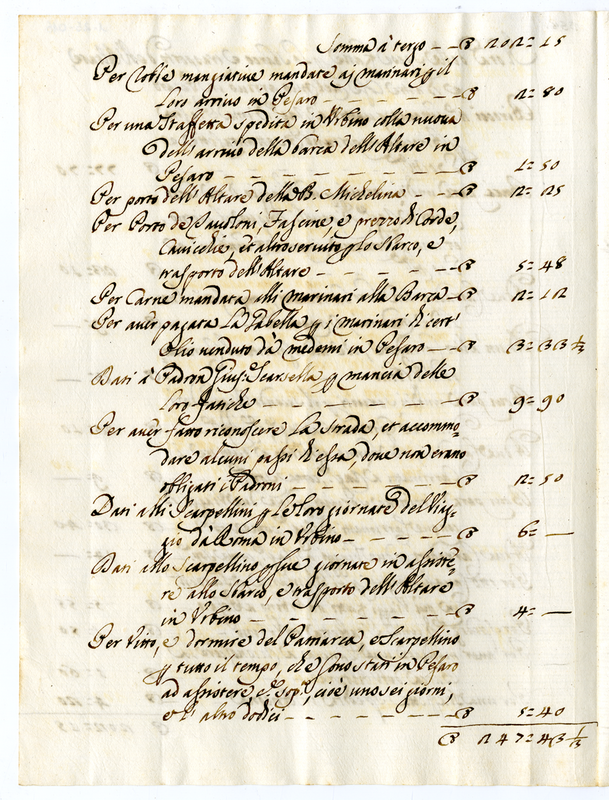 Somma à tergo — — ∇ 202=15
Per Robbe mangiative mandate aj marinari p il
loro arrivo in Pesaro — — — — ∇ 2=80
Per una Staffetta spedita in Urbino colla nuova
dell'arrivo della barca dell'Altare in
Pesaro — — — — ∇ 1=50
Per porto dell'Altare della B. Michelina — — ∇ 2=25
Per Porto de Pavoloni, Fascine, e prezzo di Corde,
Cavicchie, et altro servito p lo Sbarco, e
trasporto dell'Altare — — — — ∇ 5=48
Per Carne mandata alli marinari alla Barca — ∇ 2=12
Per aver pagata La Gabella p i marinari di cert'
Olio venduto dà medemi in Pesaro — — ∇ 3=33 1/3
Dati à Padron Gius: Scarsella p mancia delle
Loro fatiche — — — — ∇ 9=90
Per aver fatto riconoscere La Strada, et accommo-
dare alcuni passi di essa, dove non erano
obligati i Padroni — — — — ∇ 2=50
Dati alli Scarpellini p le Loro giornate del Viag-
gio dà Roma in Urbino — — — ∇ 6= —
Dati allo Scarpellino p sue giornate in assiste-
re allo Sbarco, e trasporto dell'Altare
in Urbino — — — — ∇ 4= —
Per Vitto, e dormire del Patriarca, e Scarpellino
p tutto il tempo, che sono stati in Pesaro
ad assistere c.e sop.a, cioè uno sei giorni,
e l'altro dodici — — — — ∇ 5=40
∇ 247=43 1/3